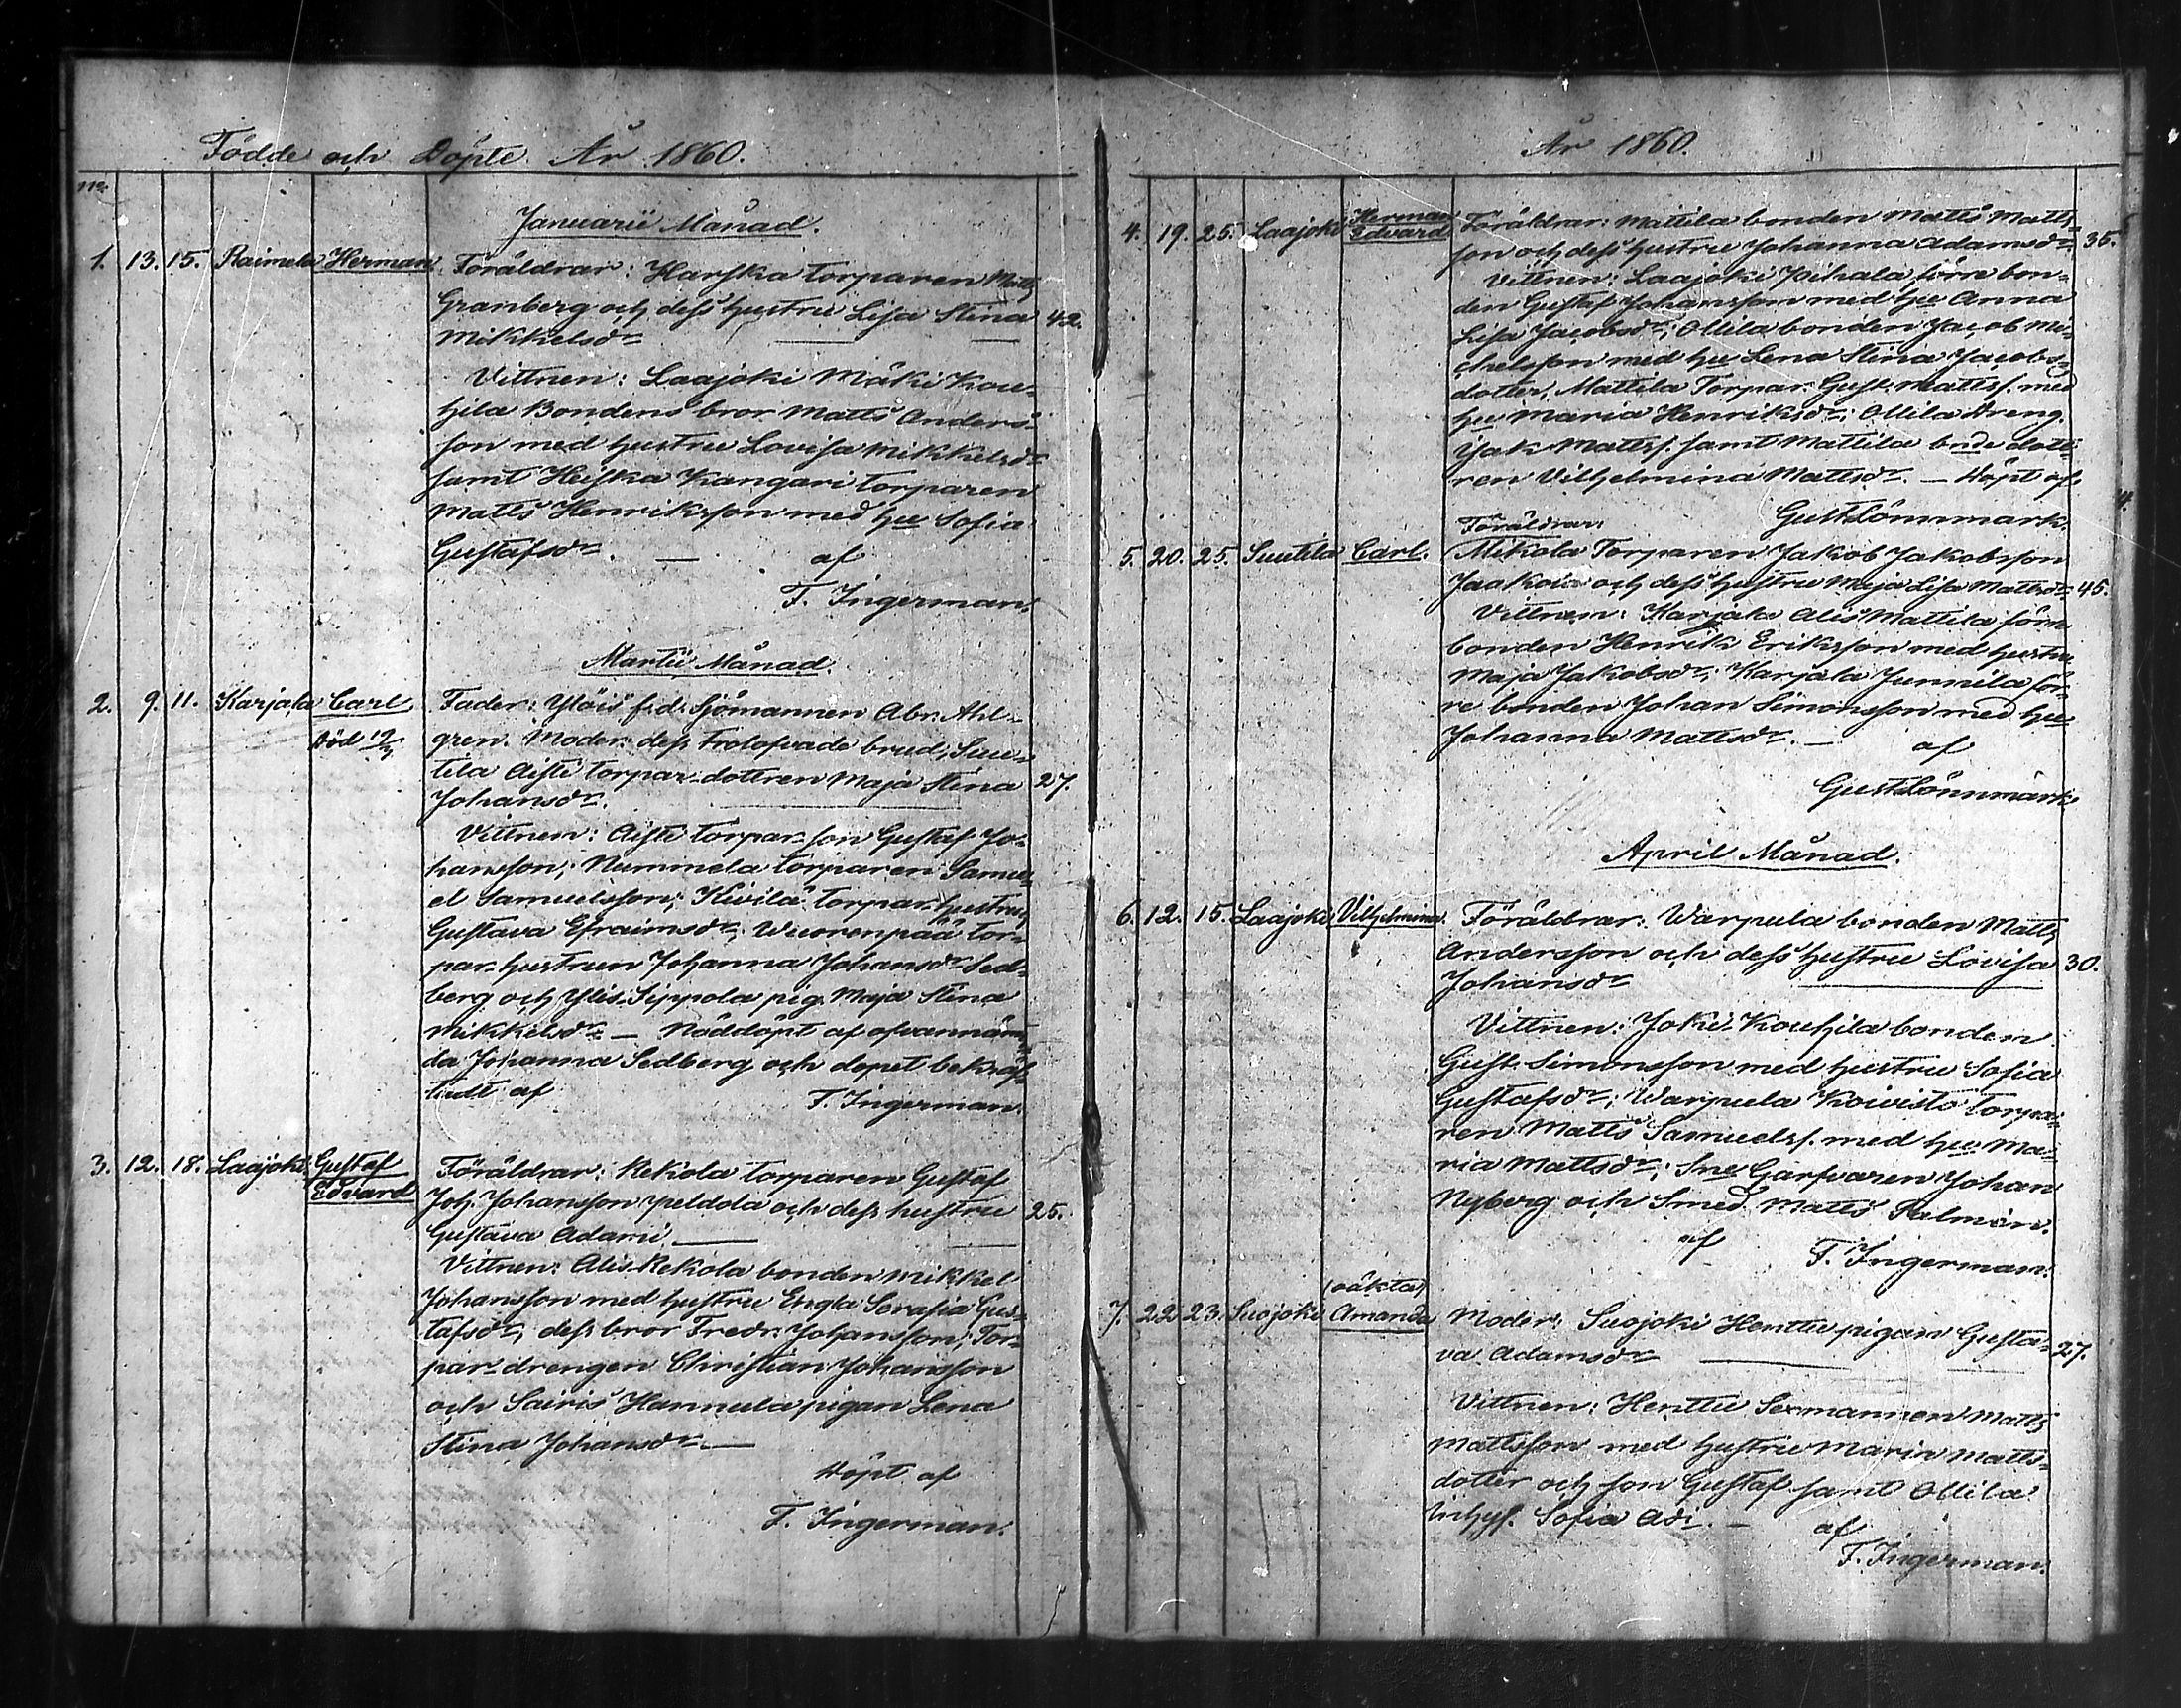 Födde och Döpte År 1860.
No
Januarii Månad.
1. 13. 15. Raimela Herman Föräldrar: Harfka torparen Matts
Granberg och dess hustru Lisa Stina 42.
Mikkelsdr
Vittnen: Laajoki Mäki Kou-
hila Bondens bror Matts Anders-
son med hustru Lovisa Mikkelsdr
samt Heiska Kangari torparen
Matts Henriksson med hu Sofia
Gustafsdr. — af
F. Ingerman.
Martii Månad.
2. 9. 11. Karjala Carl Fader: Yläis f.d. Sjömannen Abr. Ahl-
Död 19/3 gren. Moder: dess trolofvade brud, Suu-
tila Aisti torpar-dottren Maja Stina 27.
Johansdr.
Vittnen: Aisti torpar-son Gustaf Jo-
hansson; Nummela torparen Samu-
el Samuelsson; Kivilä torpar hustru
Gustava Efraimsdr; Wuorenpää tor-
par-hustrun Johanna Johansdr Sed-
berg och Ylis-Sippola pig. Maja Stina
Mikkelsdr — Nöddöpt af ofvannäm-
da Johanna Sedberg och dopet bekräf-
tadt af F. Ingerman.
3. 12. 18. Laajoki Gustaf Edvard Föräldrar: Rekola torparen Gustaf
Joh. Johansson Peldola och dess hustru 25.
Gustava Adami.
Vittnen: Alis-Rekola bonden Mikkel
Johansson med hustru Engla Serafia Gus-
tafsdr, dess bror Fredr. Johansson; Tor-
par-drengen Christian Johansson
och Sairis Hannula pigan Lena
Stina Johansdr. —
Döpt af
F. Ingerman.
År 1860.
4. 19. 25. Laajoki Herman Edvard Föräldrar: Mattila bonden Matts Matts-
son och dess hustru Johanna Adamsdr. 35.
Vittnen: Laajoki Pihala förre bon-
den Gustaf Johansson med hu Anna
Lisa Jacobsdr; Ollila bonden Jacob Mi-
chelsson med hu Lena Stina Jacobs-
dotter, Mattila Torpar. Gust. Mattss. med
hu Maria Henriksdr; Ollila dreng.
Isak Mattss. samt Mattila bnde dott-
ren Vilhelmina Mattsdr. — Döpt af
Gust Lönnmark.
Föräldrar:
5. 20. 25. Suutila Carl. Mikola Torparen Jakob Jakobsson
Jaakoia och dess hustru Maja Lisa Mattsdr 45.
Vittnen: Karjala Alis Mattila förre
bonden Henrik Eriksson med hustru
Maja Jakobsdr; Karjala Junnila för-
re bonden Johan Simonsson med hu
Johanna Mattsdr. — af
Gust Lönnmark
April Månad.
6. 12. 15. Laajoki Vilhelmina Föräldrar: Warpula bonden Matts
Andersson och dess hustru Lovisa 30.
Johansdr
Vittnen: Joki-Kouhila bonden
Gust. Simonsson med hustru Sofia
Gustafsdr; Warpula Koivisto torpa-
ren Matts Samuelss. med hu Ma-
ria Mattsdr; Sne Garfvaren Johan
Nyberg och Smed Matts Palmén.
af F. Ingerman.
(oäkta)
7. 22. 23. Suojoki Amanda Moder: Suojoki Henttu pigan Gusta-
va Adamsdr 27.
Vittnen: Henttu Sexmannen Matts
Mattsson med hustru Maria Matts-
dotter och son Gustaf samt Ollila
inhys. Sofia Adi. — af
F. Ingerman.